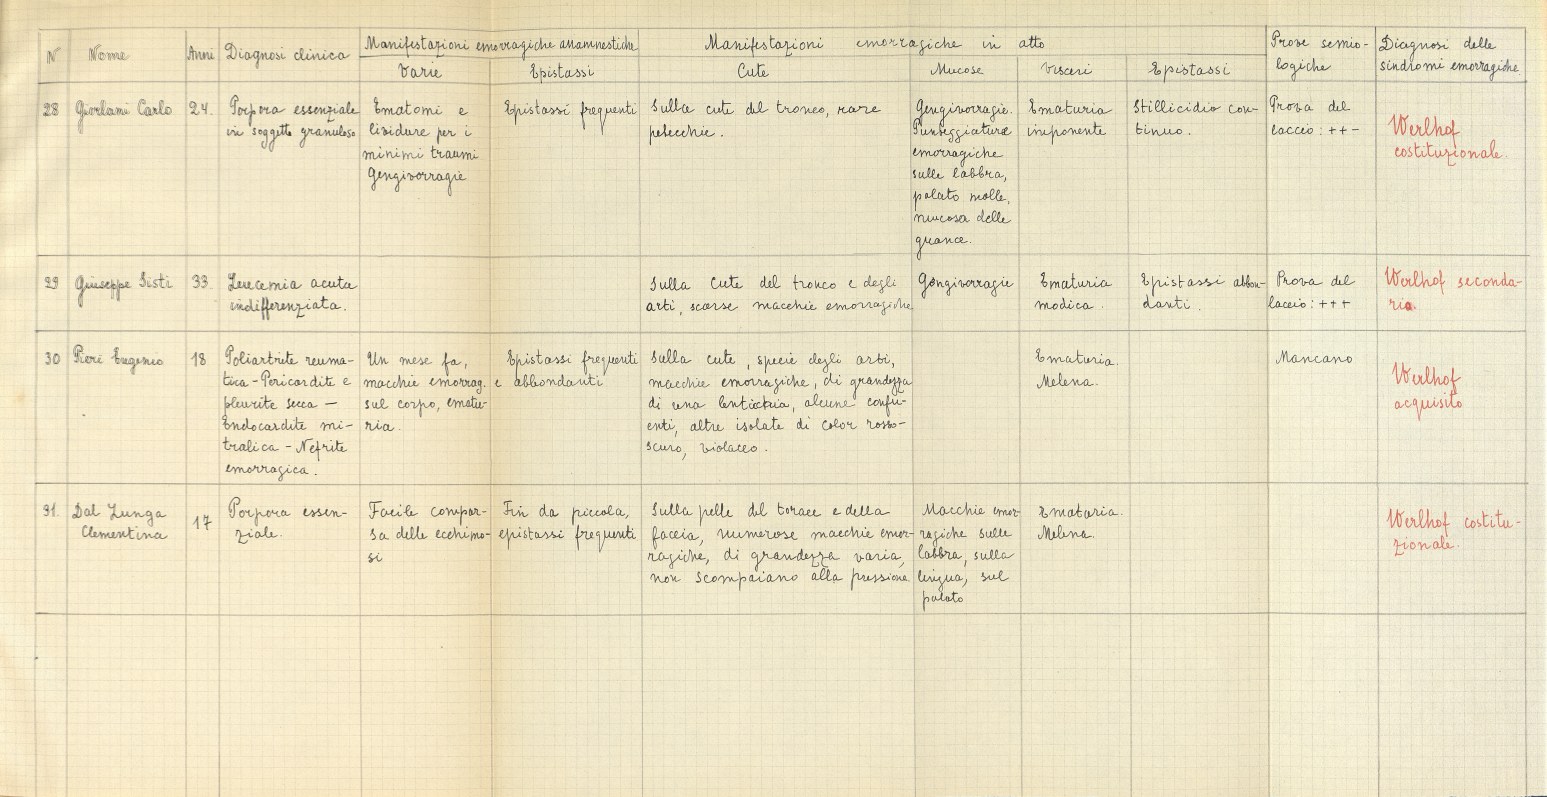 N
Nome
Anni
Diagnosi clinica
Manifestazioni emorragiche anamnestiche
Varie
Epistassi
Manifestazioni emorragiche in atto
Cute
Mucose
Visceri
Epistassi
Prove semio-
logiche
Diagnosi delle
sindromi emorragiche
28
Giordani Carlo
24.
Porpora essenziale
in soggetto granuloso
Ematomi e
lividure per i
minimi traumi
Gengivorragie
Epistassi frequenti
Sulla cute del tronco, rare
petecchie.
Gengivorragie.
Punteggiature
emorragiche
sulle labbra,
palato molle,
mucosa delle
guance.
Ematuria
imponente
Stillicidio con-
tinuo.
Prova del
laccio: ++-
Werlhof
costituzionale.
29
Giuseppe Sisti
33.
Leucemia acuta
indifferenziata.
Sulla cute del tronco e degli
arti, scarse macchie emorragiche
Gengivorragie
Ematuria
modica.
Epistassi abbon-
danti.
Prova del
laccio: +++
Werlhof seconda-
ria.
30
Pieri Eugenio
18
Poliartrite reuma-
tica - Pericardite e
pleurite secca —
Endocardite mi-
tralica - Nefrite
emorragica.
Un mese fa,
macchie emorrag.
sul corpo, ematu-
ria.
Epistassi frequenti
e abbondanti
Sulla cute, specie degli arti,
macchie emorragiche, di grandezza
di una lenticchia, alcune conflu-
enti, altre isolate di color rosso-
scuro, violaceo.
Ematuria.
Melena.
Mancano
Werlhof
acquisito
31.
Dal Lunga
Clementina
17
Porpora essen-
ziale.
Facile compar-
sa delle ecchimo-
si
Fin da piccola,
epistassi frequenti
Sulla pelle del torace e della
faccia, numerose macchie emor-
ragiche, di grandezza varia,
non scompaiano alla pressione
Macchie emor-
ragiche sulle
labbra, sulla
lingua, sul
palato
Ematuria.
Melena.
Werlhof costitu-
zionale.